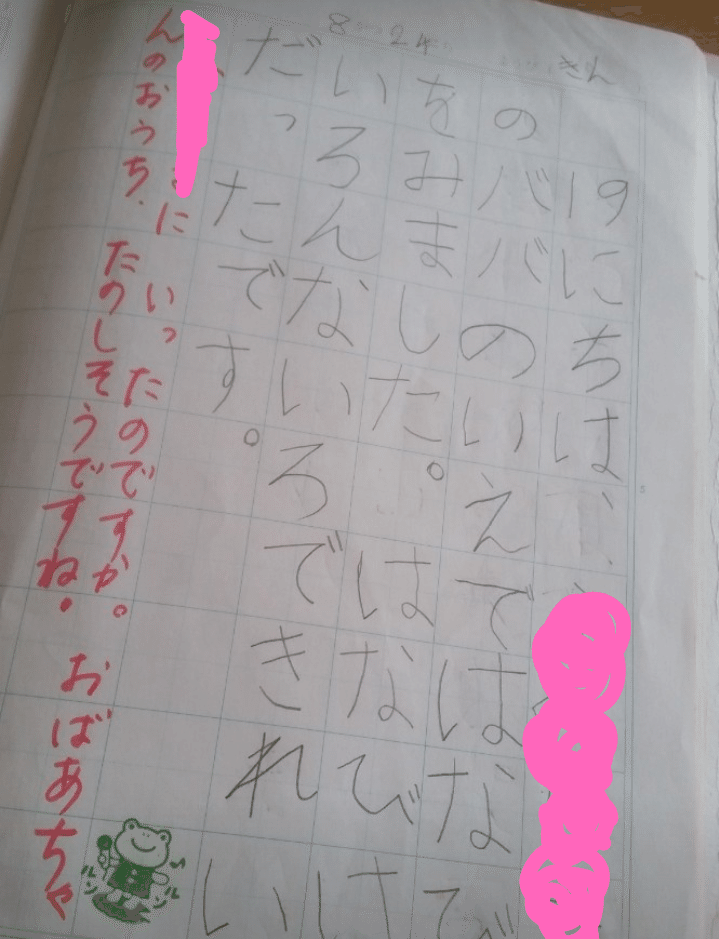 8 24 きん
19にちは、
のババのいえではなび
をみました。はなびは
いろんないろできれい
だったです。
にいったのですか。おばあちゃ
んのおうち、たのしそうですね。
ルンルン